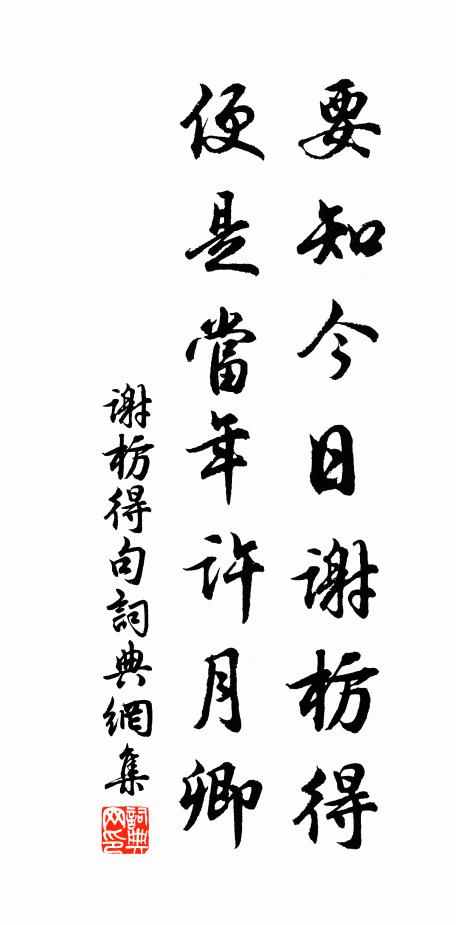 要知今日謝枋得
便是當年許月卿
謝枋得句詞典網集
詞典网印